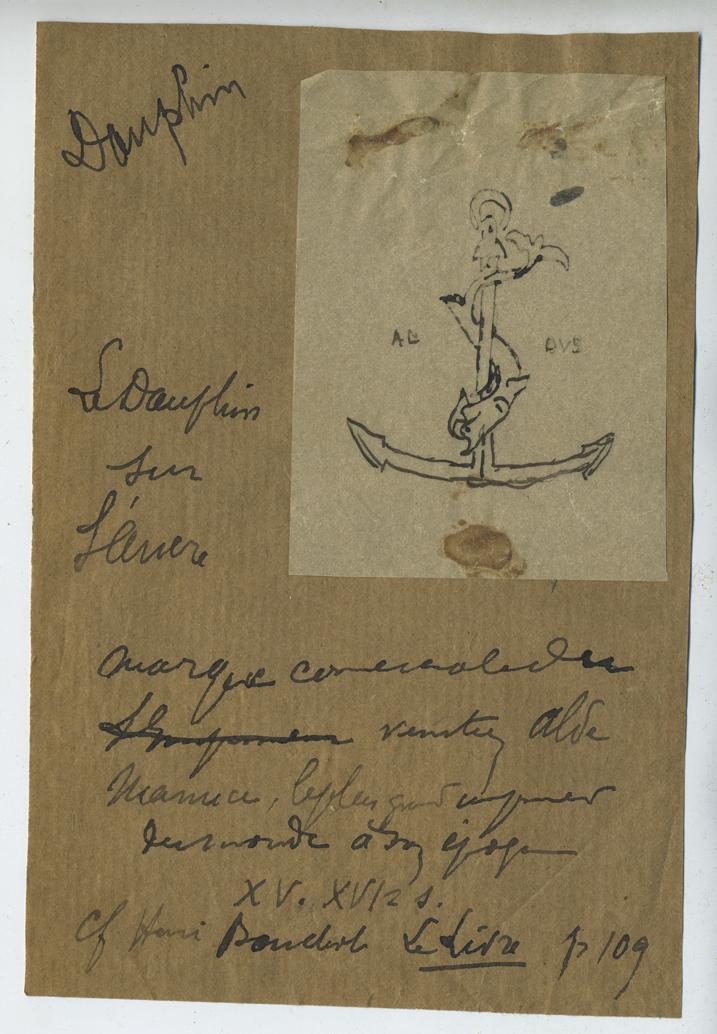 Dauphin
AL DVS
Le Dauphin
sur
l'Ancre
marque commerciale du
venitien Alde
Manuce, le plus grand imprimeur
du monde à son époque
XV. XVI e s.
cf Henri Bouchot Le Livre p 109